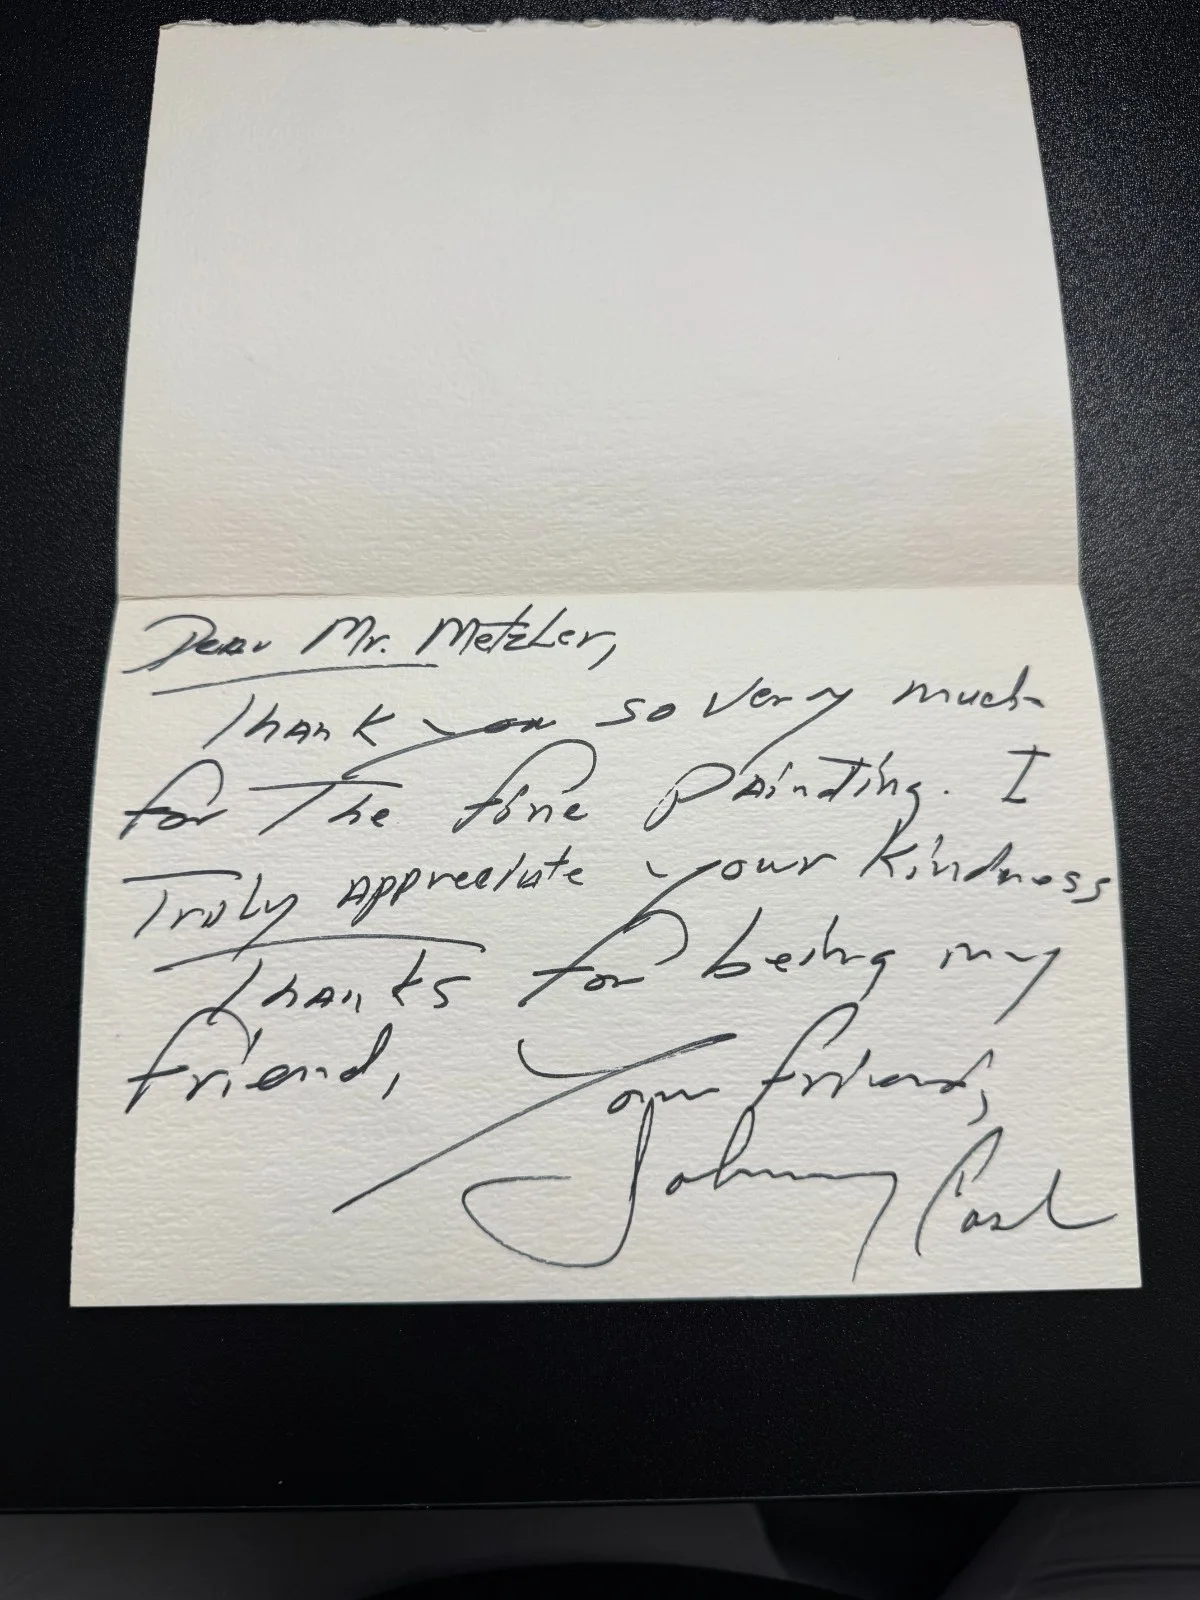 Dear Mr. Metzler,
Thank you so very much
for The fine painting. I
Truly appreciate your kindness
Thanks for being my
friend,
Your friend,
Johnny Cash